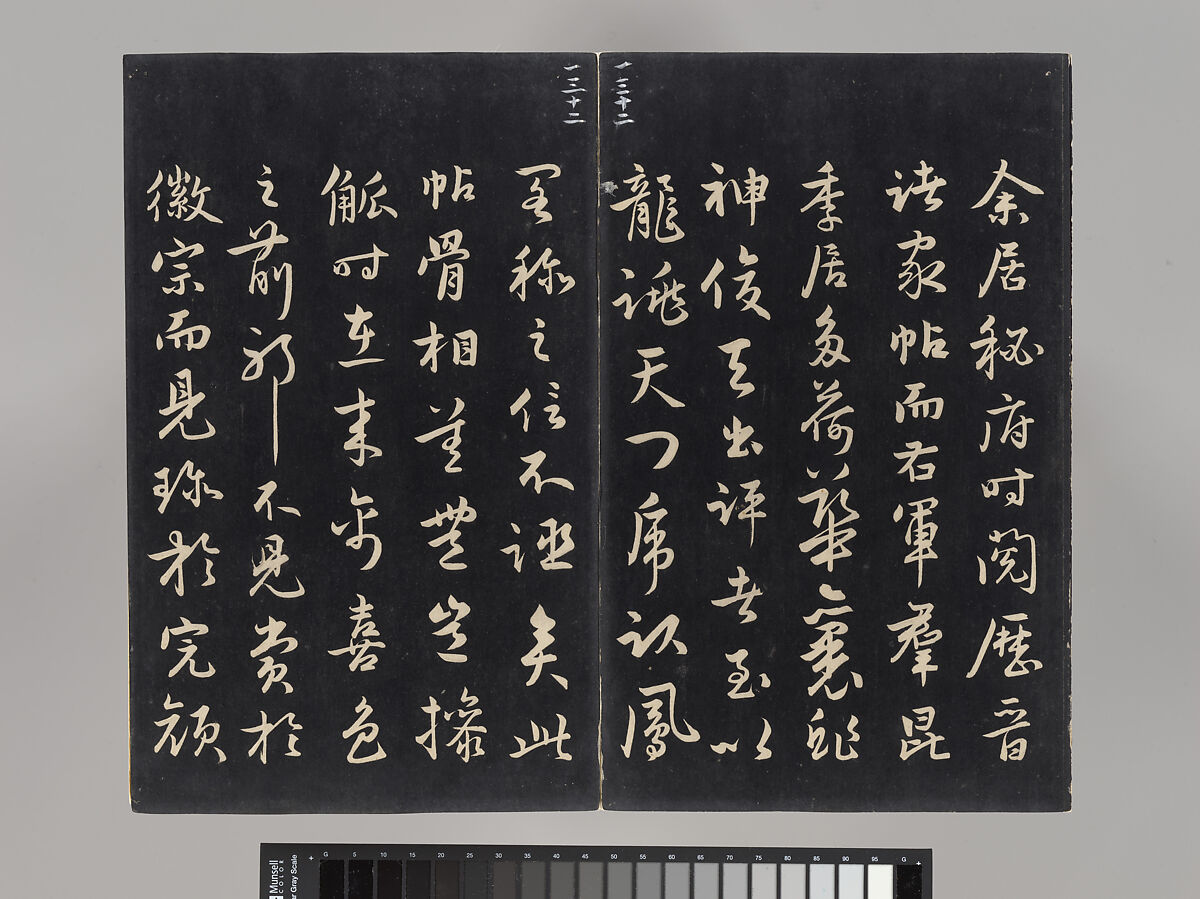 余居秘府时閱歷晉
諸家帖而右軍羣昆
季居多荷華
神俊天出評者至以
龍跳天門虎臥鳳
閣稱之信不誣矣此
帖骨相差豐豈操
觚时在來禽喜色
之前耶不見賞於
徽宗而見珍於完顏
一三十二
一三十二
Munsell
COLOR
Gray Scale
G 5 10 15 20 25 30 35 40 45 50 55 60 65 70 75 80 85 90 95 G